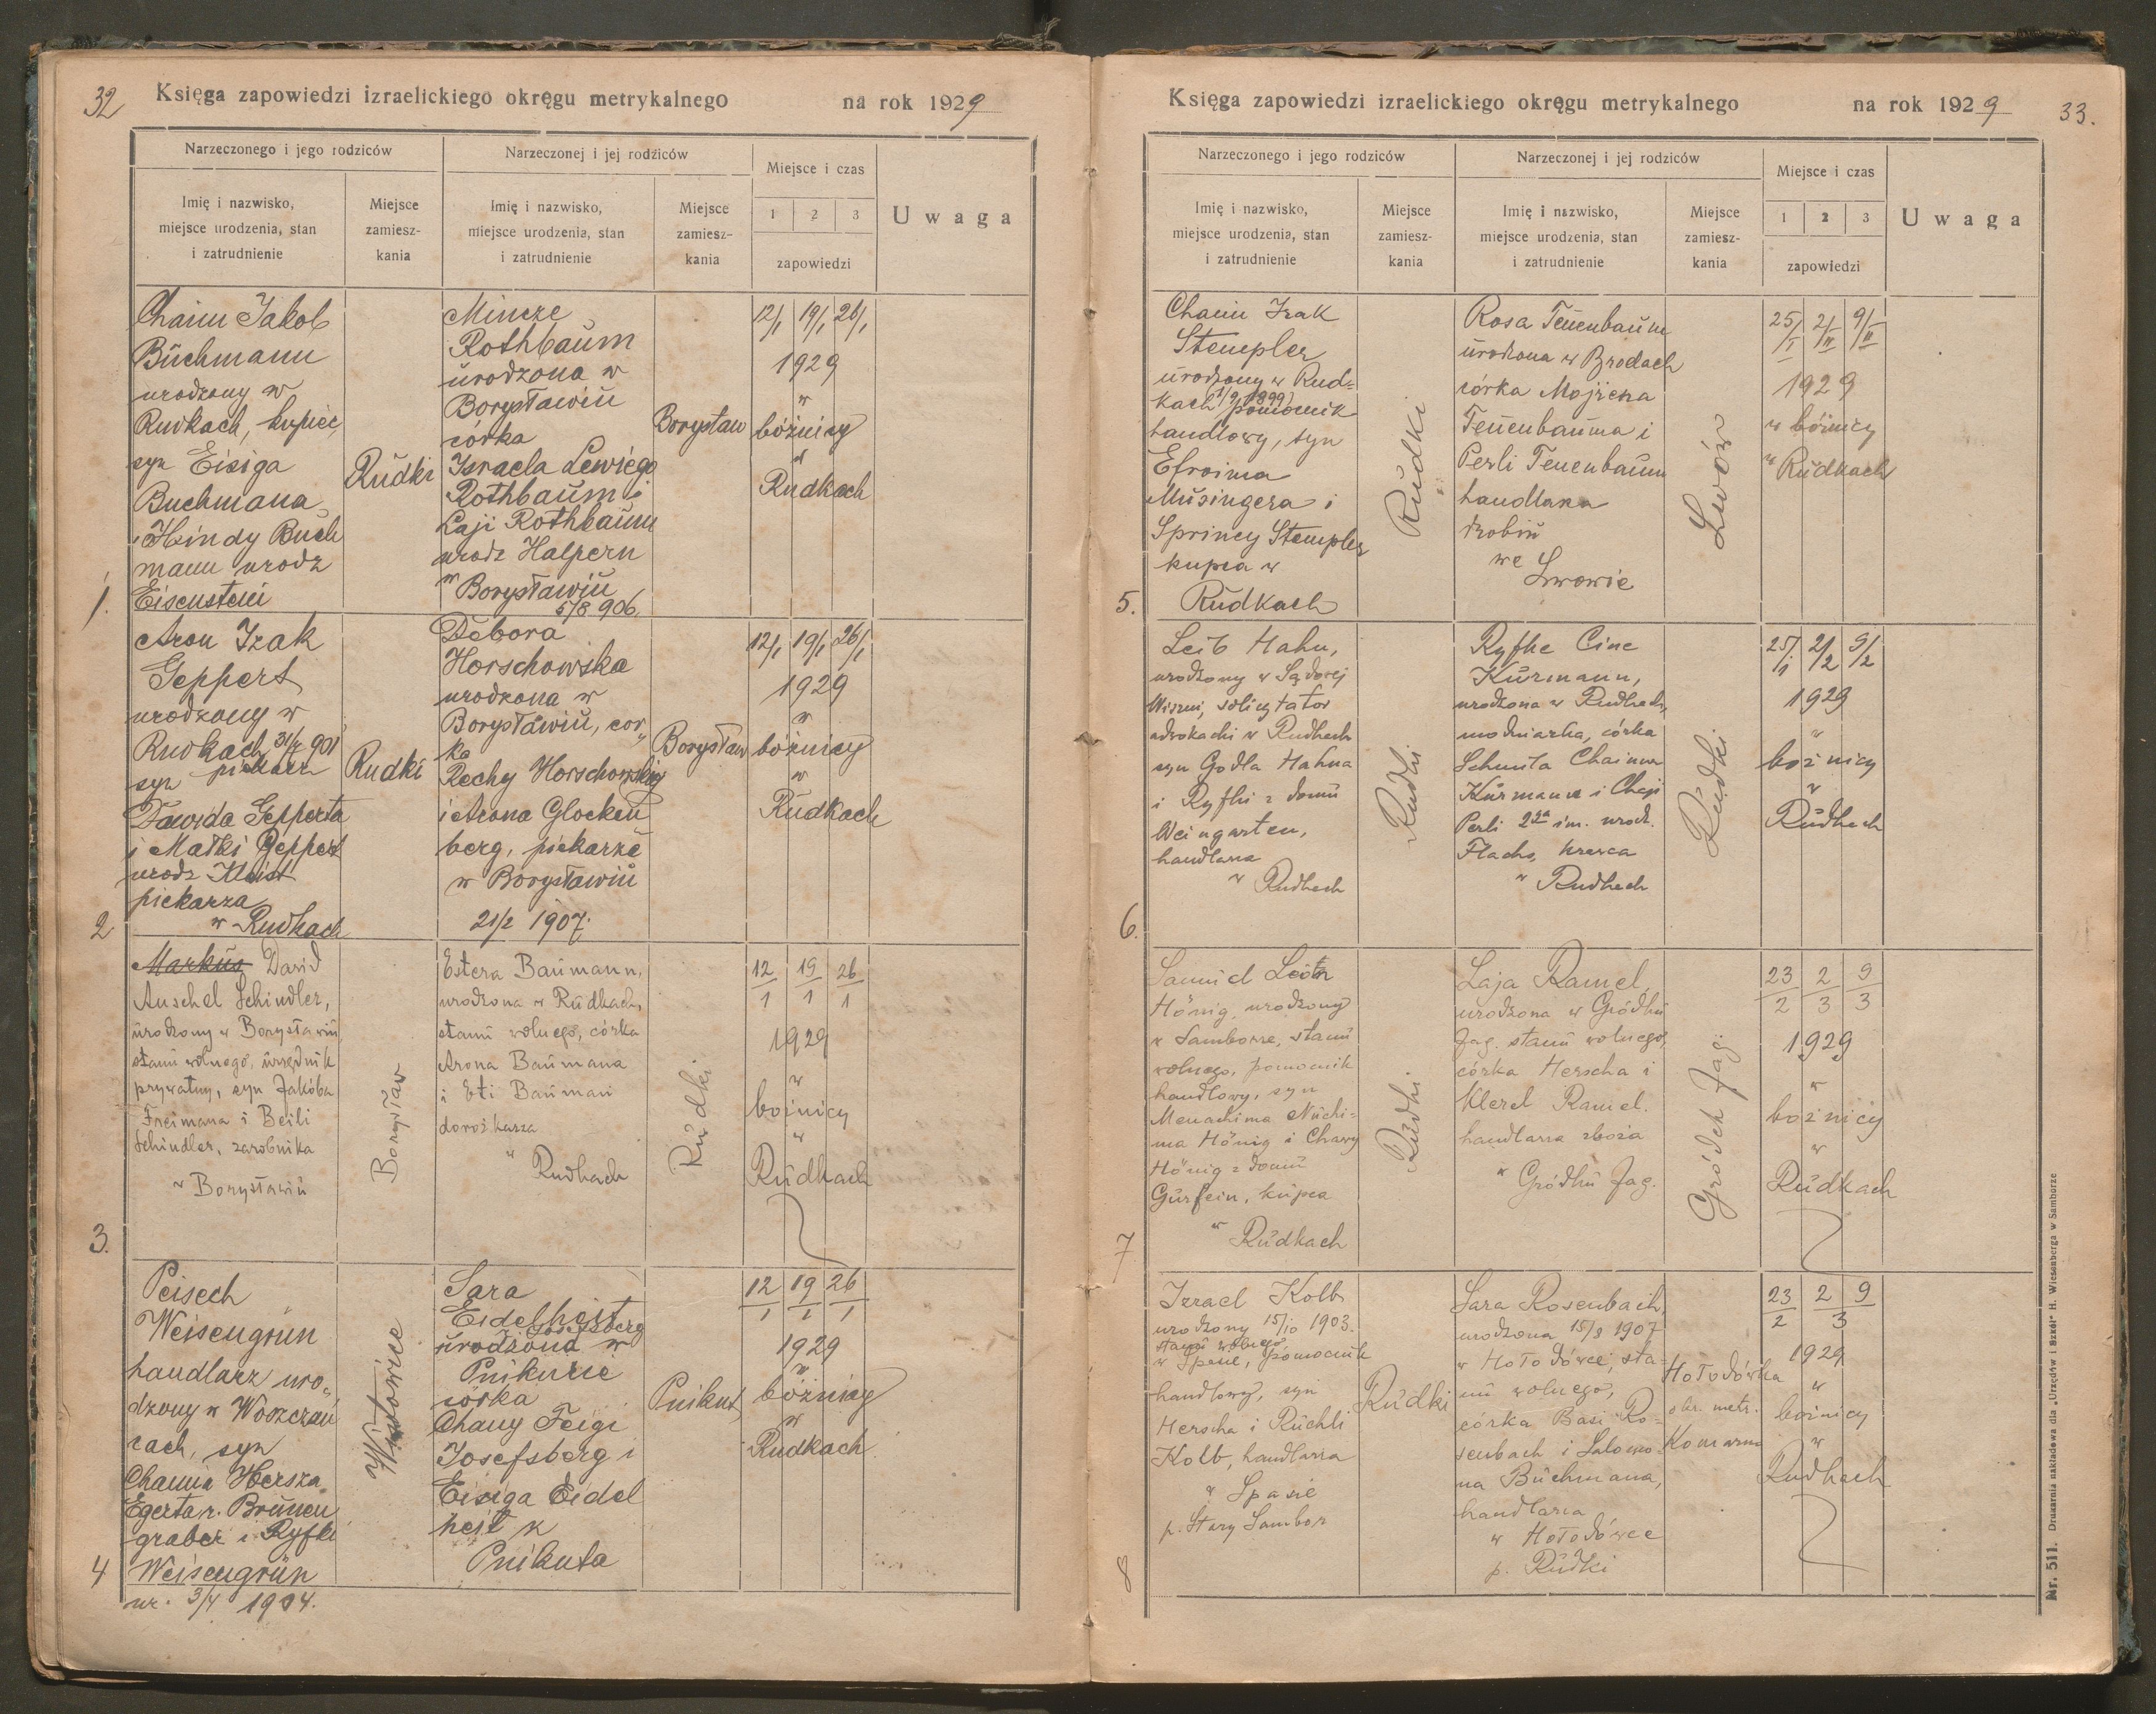 32
Księga zapowiedzi izraelickiego okręgu metrykalnego na rok 1929
Narzeczonego i jego rodziców
Narzeczonej i jej rodziców
Miejsce i czas
Uwaga
Imię i nazwisko,
miejsce urodzenia, stan
i zatrudnienie
Miejsce
zamiesz-
kania
Imię i nazwisko,
miejsce urodzenia, stan
i zatrudnienie
Miejsce
zamiesz-
kania
1 2 3
zapowiedzi
1.
Chaim Jakob
Buchmann
urodzony w
Rudkach, kupiec,
syn Eisiga
Buchmana
i Hindy Buch
mann urodz
Eisenstein
Rudki
Mincze
Rothbaum
urodzona w
Borysławiu
córka
Israela Lewiego
Rothbaum i
Laji Rothbaum
urodz Halpern
w Borysławiu
5/8 906.
Borysław
12/1 19/1 26/1
1929
w
bóżnicy
w
Rudkach
2
Aron Izak
Geppert
urodzony w
Rudkach 901
syn piekarz
Dawida Gepperta
i Małki Geppert
urodz Kleist
piekarza
w Rudkach
Rudki
Debora
Horschowska
urodzona w
Borysławiu, cór„
ka
Rechy Horschowskiej
i Arona Glocken
berg, piekarze
w Borysławiu
21/2 1907.
Borysław
12/1 19/1 26/1
1929
w
bóżnicy
w
Rudkach
3.
Markus Dawid
Anschel Schindler,
urodzony w Borysławiu
stanu wolnego, urzędnik
prywatny, syn Jakóba
Freimana i Beili
Schindler, zarobnika
w Borysławiu
Borysław
Estera Baumann,
urodzona w Rudkach,
stanu wolnego, córka
Arona Baumana
i Eti Bauman
dorożkarza
w Rudkach
Rudki
12/1 19/1 26/1
1929
w
bożnicy
w
Rudkach
4
Peisech
Weisengrün
handlarz uro„
dzony w Woszczań
cach, syn
Chaima Herszka
Egerta r. Brunen
graber i Ryfki
Weisengrün
ur. 3/4 1904.
Sara
Eidelheit
Josefsberg
urodzona w
Pnikucie
córka
Chany Feigi
Josefsberg i
Eisiga Eidel
heit z
Pnikuta
Pnikut
12/1 19/1 26/1
1929
w
bóżnicy
w
Rudkach
Księga zapowiedzi izraelickiego okręgu metrykalnego na rok 1929
33.
Narzeczonego i jego rodziców
Narzeczonej i jej rodziców
Miejsce i czas
Uwaga
Imię i nazwisko,
miejsce urodzenia, stan
i zatrudnienie
Miejsce
zamiesz-
kania
Imię i nazwisko,
miejsce urodzenia, stan
i zatrudnienie
Miejsce
zamiesz-
kania
1 2 3
zapowiedzi
5.
Chaim Izak
Stempler
urodzony w Rud=
kach 1/9 1899 pomocnik
handlowy, syn
Efroima
Musingera i
Sprincy Stempler
kupca w
Rudkach
Rudki
Rosa Tenenbaum
urodzona w Brodach
córka Mojżesza
Tenenbauma i
Perli Tenenbaum
handlarza
drobiu
we
Lwowie
Lwów
25/I 2/II 9/II
1929
w bóżnicy
w Rudkach
6.
Leib Hahn,
urodzony w Sądowej
Wiszni, solicytator
adwokacki w Rudkach
syn Godla Hahna
i Ryfki z domu
Weingarten,
handlarza
w Rudkach
Rudki
Ryfke Cine
Kurmann,
urodzona w Rudkach,
modniarka, córka
Schmila Chaima
Kurmann i Chaji
Perli 2ga im. urodz.
Flachs, krawca
w Rudkach
Rudki
25/1 2/2 9/2
1929
w
bożnicy
w
Rudkach
7
Samuel
Hönig, urodzony
w Samborze, stanu
wolnego, pomocnik
handlowy, syn
Menachima Nuchi=
ma Hönig i Chawy
Hönig z domu
Gurfein, kupca
w Rudkach
Rudki
Laja Ramel,
urodzona w Gródku
Jag. stanu wolnego,
córka Herscha i
Klerel Ramel.
handlarza zboża
w Gródku Jag.
Gródek Jag.
23/2 2/3 9/3
1929
w
bożnicy
w
Rudkach
8
Izrael Kolb
urodzony 15/10 1903.
stanu wolnego
w Spasie, pomocnik
handlowy, syn
Herscha i Ruchli
Kolb, handlarza
w Spasie
p. Stary Sambor
Rudki
Sara Rosenbach,
urodzona 15/8 1907
w Hołodówce, sta=
nu wolnego,
córka Basi Ro=
senbach i Salomo=
na Buchmana,
handlarza
w Hołodówce
p. Rudki
Hołodówka
okr. metr.
Komarno
23/2 2 9/3
1929
w
bożnicy
w
Rudkach
Nr. 511. Drukarnia nakładowa dla „Urzędów i Szkół" H. Wiesenberga w Samborze